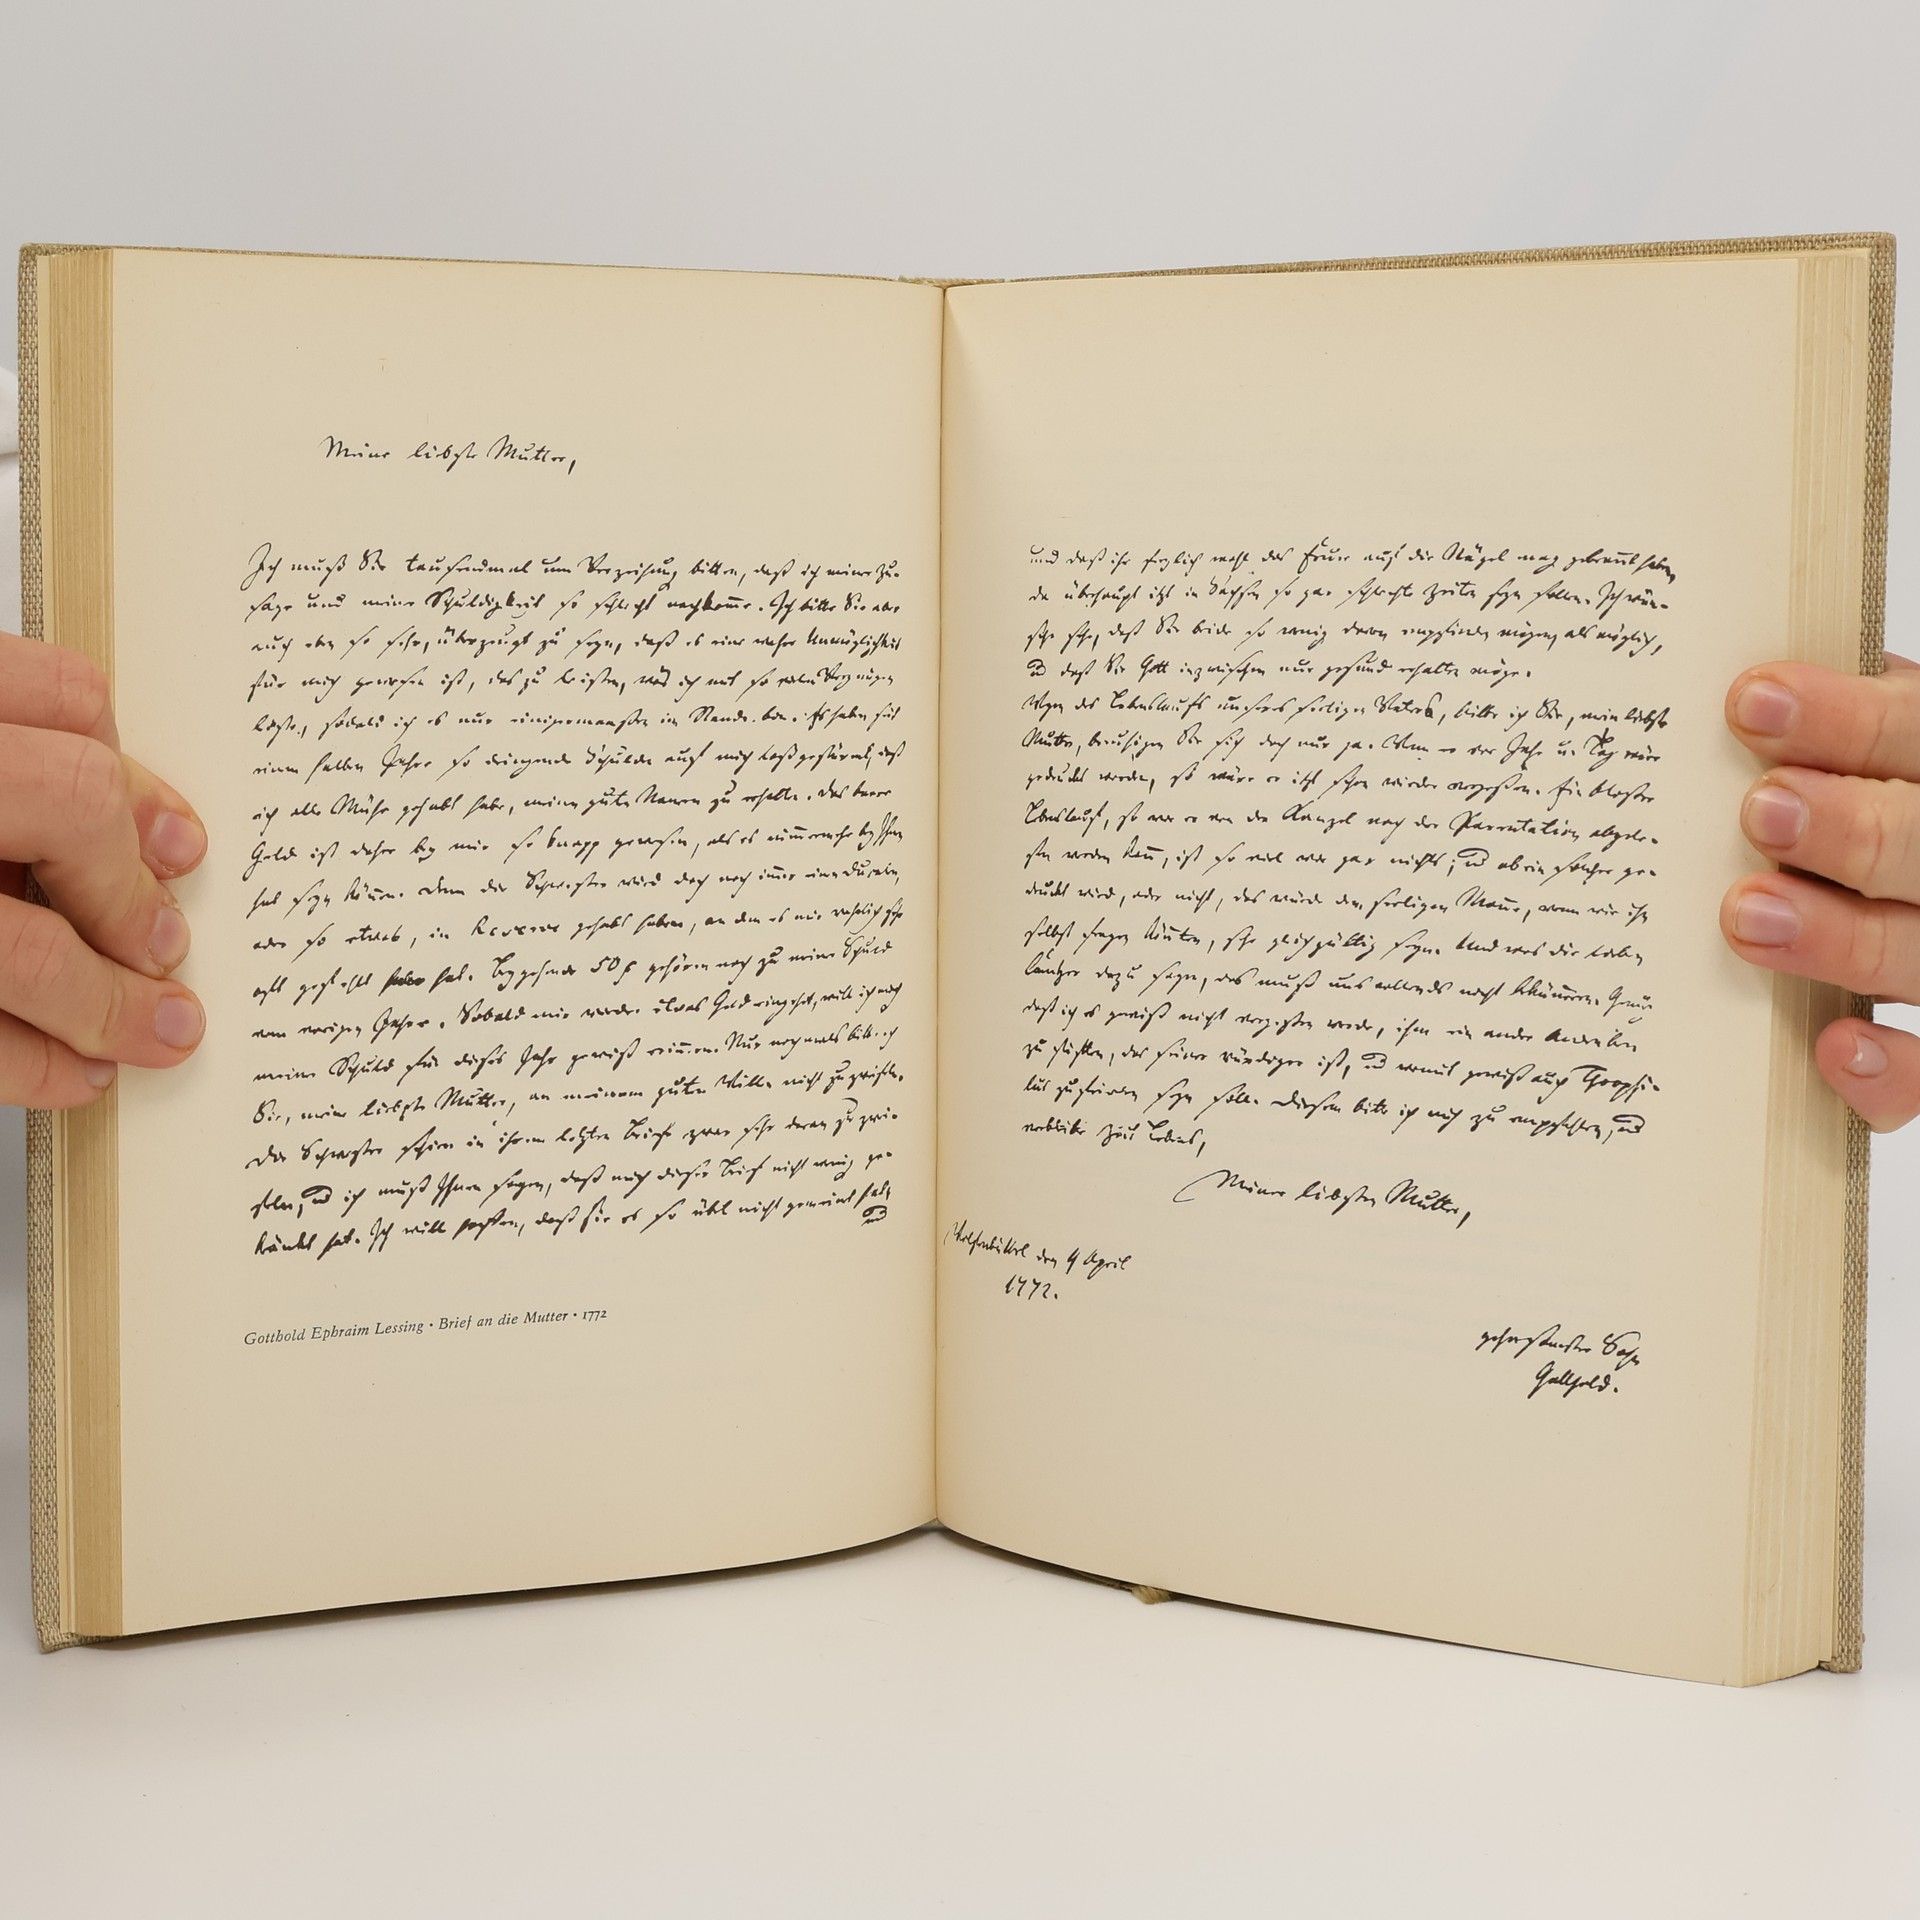 Meine liebste Mutter,
Ich muß Sie tausendmal um Verzeihung bitten, daß ich meiner Zu-
sage und meiner Schuldigkeit so schlecht nachkom̄e. Ich bitte Sie aber
auch eben so sehr, überzeugt zu seyn, daß es eine wahre Unmöglichkeit
für mich gewesen ist, das zu leisten, was ich mit so vielem Vergnügen
leiste, sobald ich es nur einigermaaßen im Stande bin. Es haben seit
einem halben Jahre so dringende Schulden auf mich losgestürmt, daß
ich alle Mühe gehabt habe, meinen guten Namen zu erhalten. Das baare
Geld ist daher bey mir so knapp gewesen, als es nim̄ermehr bey Ihnen
hat seyn kön̄en. Denn die Schwester wird doch noch im̄er einen Ducaten,
oder so etwas, in Reserve gehabt haben, an dem es mir wahrlich sehr
oft gefehlt hat. Beygehende 50 gehören noch zu meiner Schuld
vom vorigen Jahre. Sobald mir wieder etwas Geld eingehet, will ich auch
meine Schuld für dieses Jahr gewiß Nur nochmals bitte ich
Sie, meine liebste Mutter, an meinem guten Willen nicht zu zweifeln.
Die Schwester schien in ihrem letzten Briefe zwar sehr daran zu zwei-
feln, und ich muß Ihnen sagen, daß mich dieser Brief nicht wenig ge-
kränkt hat. Ich will hoffen, daß sie es so übel nicht gemeint hat,
und
Gotthold Ephraim Lessing · Brief an die Mutter · 1772
und daß ihr freylich wohl das Feuer auf die Nägel mag gebrannt haben,
da überhaupt itzt in Sachsen so gar schlechte Zeiten seyn sollen. Ich wün-
sche sehr, daß Sie beide so wenig davon empfinden mögen, als möglich,
und daß Sie Gott inzwischen nur gesund erhalten möge.
Wegen des Lebenslaufs unsers seeligen Vaters, bitte ich Sie, meine liebste
Mutter, beruhigen Sie sich doch nur ja. Wenn er vor Jahr u. Tag wäre
gedruckt worden, so wäre er itzt schon wieder vergessen. Ein bloßer
Lebenslauf, so wie er von der Kanzel nach der Parentation abgele-
sen werden kan̄, ist so viel wie gar nichts; und ob ein solcher ge-
druckt wird, oder nicht, das würde dem seeligen Manne, wenn wir ihn
selbst fragen kön̄ten, sehr gleichgültig seyn. Und was die lieben
dazu sagen, das muß uns vollends nicht bekümmern. Genug
daß ich es gewiß nicht vergessen werde, ihm ein ander Andenken
zu stiften, das seiner würdiger ist, und womit gewiß auch Theophi-
lus zufrieden seyn soll. Diesem bitte ich mich zu empfehlen, und
verbleibe Zeit Lebens,
Meiner liebsten Mutter,
Wolfenbüttel den 9 April
1772.
gehorsamster Sohn
Gotthold.